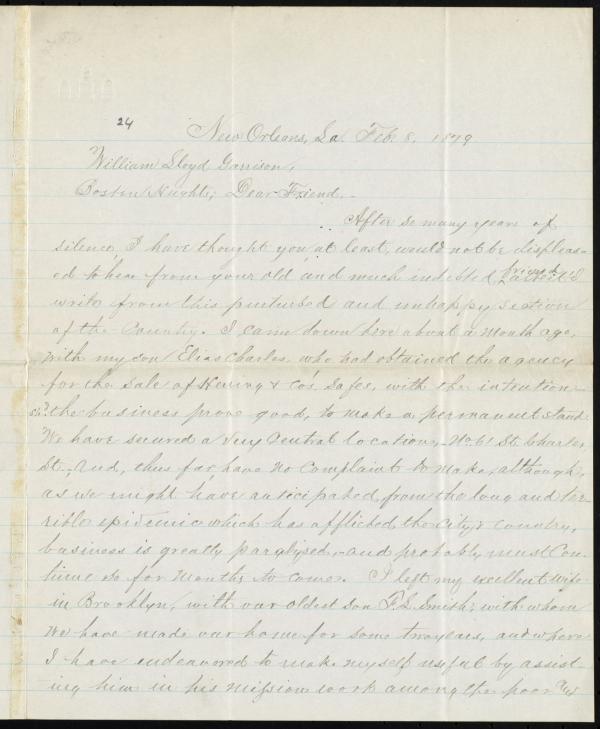 24
New Orleans, La. Feb. 8, 1879
William Lloyd Garrison,
Boston Hughts; Dear Friend.
After so many years of
silence, I have thought you, at least, would not be displeas-
ed to hear from your old and much indebted friend,
write from this perturbed and unhappy section
of the Country. I came down here about a month ago,
with my son Elias Charles, who had obtained the agency
for the sale of Herring & Co's. Safes, with the intention
sh'd the business prove good, to make a permanent stand.
We have secured a very Central location, No. 61 St. Charles
St., and, thus far, have no Complaint to make, although,
as we might have anticipated, from the long and ter-
rible epidemic which has afflicted the City & Country,
business is greatly paralysed, and probably must Con-
tinue so for months to come. I left my excellent wife
in Brooklyn, with our oldest son F. L. Smith; with whom
we have made our home for some two years, and where
I have endeavored to make myself useful by assist-
ing him in his mission work among the poor